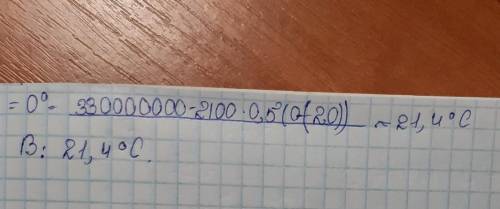 = 0° - 330000000-2100·0,5(0-(20)) ≈ 21,4°C
В: 21,4°C.